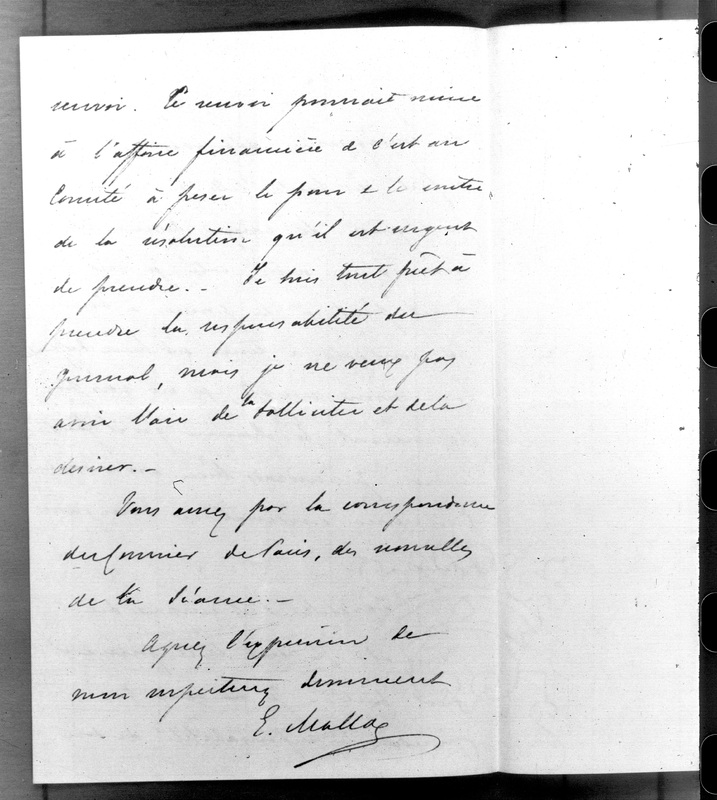 renvoi. Ce renvoi pourrait nuire
à l'affaire financière & c'est au
Comité à peser le pour & le contre
de la résolution qu'il est urgent
de prendre. - Je suis tout prêt à
prendre la responsabilité du
journal, mais je ne veux pas
avoir l'air de la solliciter et de la
désirer. -
Vous aurez par la correspondance
du Courrier de Paris, des nouvelles
de la séance. -
Agréez l'expression de
mon respectueux dévouement
E.